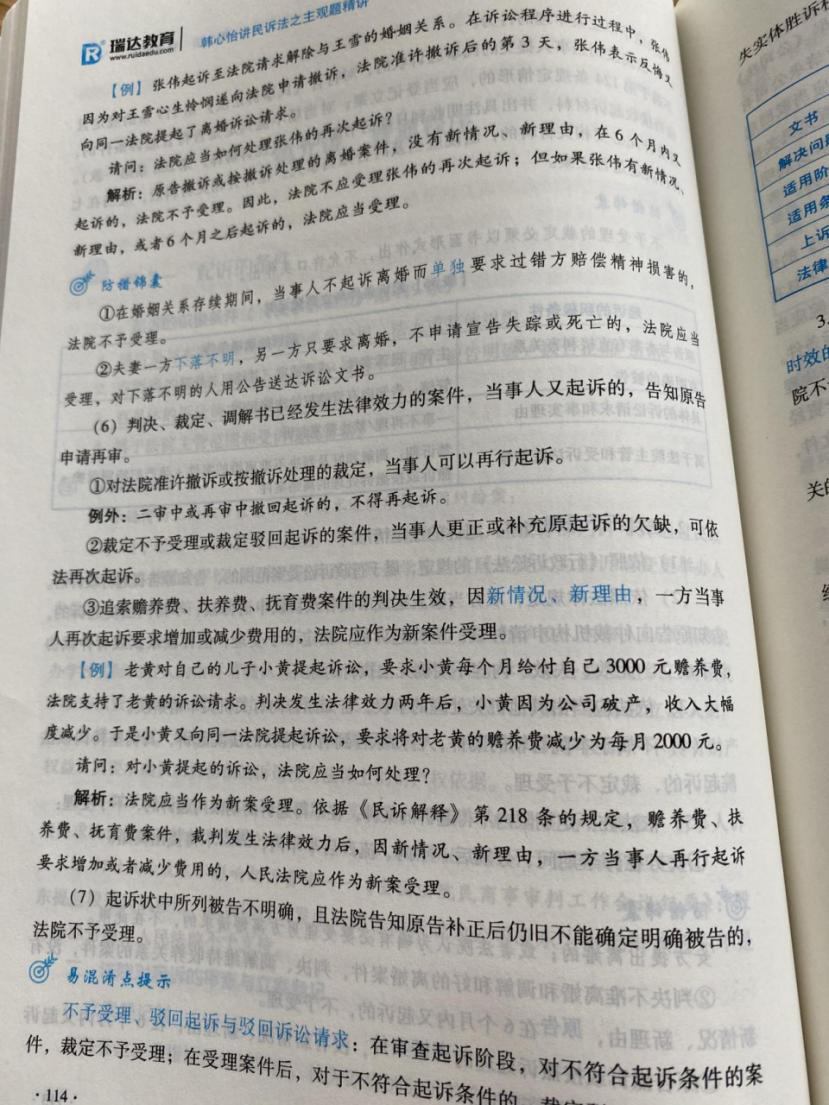 瑞达教育
www.ruidaedu.com
韩心怡讲民诉法之主观题精讲
【例】张伟起诉至法院请求解除与王雪的婚姻关系。在诉讼程序进行过程中，张伟
因为对王雪心生怜悯遂向法院申请撤诉，法院准许撤诉后的第 3 天，张伟表示反悔又
向同一法院提起了离婚诉讼请求。
请问：法院应当如何处理张伟的再次起诉？
解析：原告撤诉或按撤诉处理的离婚案件，没有新情况、新理由，在 6 个月内又
起诉的，法院不予受理。因此，法院不应受理张伟的再次起诉；但如果张伟有新情况、
新理由，或者 6 个月之后起诉的，法院应当受理。
防错锦囊
①在婚姻关系存续期间，当事人不起诉离婚而单独要求过错方赔偿精神损害的，
法院不予受理。
②夫妻一方下落不明，另一方只要求离婚，不申请宣告失踪或死亡的，法院应当
受理，对下落不明的人用公告送达诉讼文书。
（6）判决、裁定、调解书已经发生法律效力的案件，当事人又起诉的，告知原告
申请再审。
①对法院准许撤诉或按撤诉处理的裁定，当事人可以再行起诉。
例外：二审中或再审中撤回起诉的，不得再起诉。
②裁定不予受理或裁定驳回起诉的案件，当事人更正或补充原起诉的欠缺，可依
法再次起诉。
③追索赡养费、扶养费、抚育费案件的判决生效，因新情况、新理由，一方当事
人再次起诉要求增加或减少费用的，法院应作为新案件受理。
【例】老黄对自己的儿子小黄提起诉讼，要求小黄每个月给付自己 3000 元赡养费，
法院支持了老黄的诉讼请求。判决发生法律效力两年后，小黄因为公司破产，收入大幅
度减少。于是小黄又向同一法院提起诉讼，要求将对老黄的赡养费减少为每月 2000 元。
请问：对小黄提起的诉讼，法院应当如何处理？
解析：法院应当作为新案受理。依据《民诉解释》第 218 条的规定，赡养费、扶
养费、抚育费案件，裁判发生法律效力后，因新情况、新理由，一方当事人再行起诉
要求增加或者减少费用的，人民法院应作为新案受理。
（7）起诉状中所列被告不明确，且法院告知原告补正后仍旧不能确定明确被告的，
法院不予受理。
易混淆点提示
不予受理、驳回起诉与驳回诉讼请求：在审查起诉阶段，对不符合起诉条件的案
件，裁定不予受理；在受理案件后，对于不符合起诉条件的
·114·
失实体胜诉
文书
解决问
适用阶
适用条
上诉
法律
3.
时效的
院不
关的